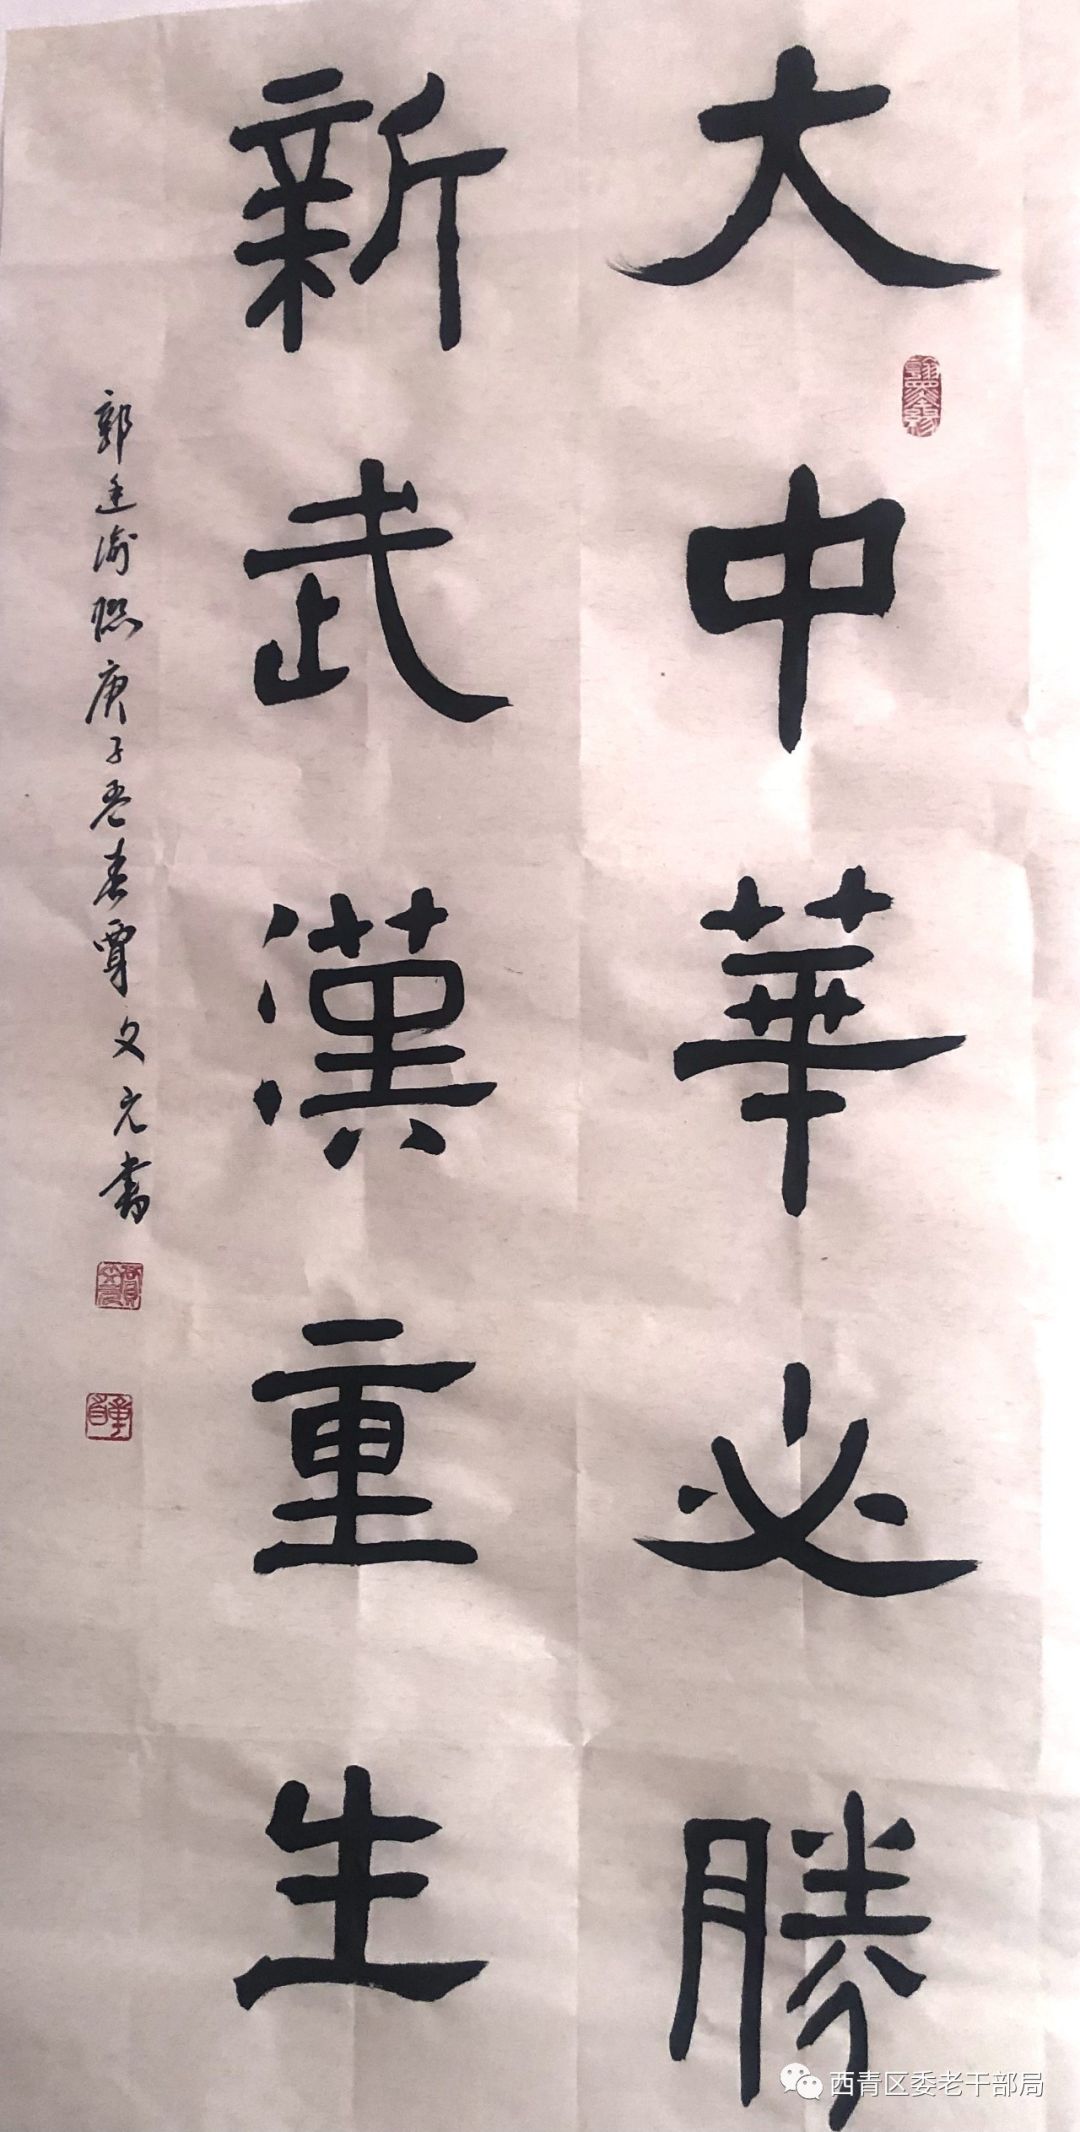 大中華必勝
新武漢重生
郭廷瑜联庚子孟春覃文元書
西青区委老干部局